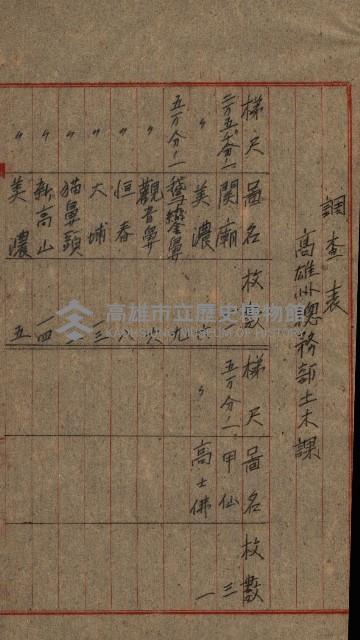 調查表
高雄州總務部土木課
梯尺 圖名 枚數 梯尺 圖名 枚數
二万五千分ノ一 關廟 五万分ノ一 甲仙 三
〃 美濃 六 〃 高士佛 一
五万分ノ一 鵝鑾鼻 九
〃 觀音鼻 六
〃 恒春 八
〃 大埔 一三
〃 貓鼻頭
〃 新高山 一四
〃 美濃 五
高雄市立歷史博物館